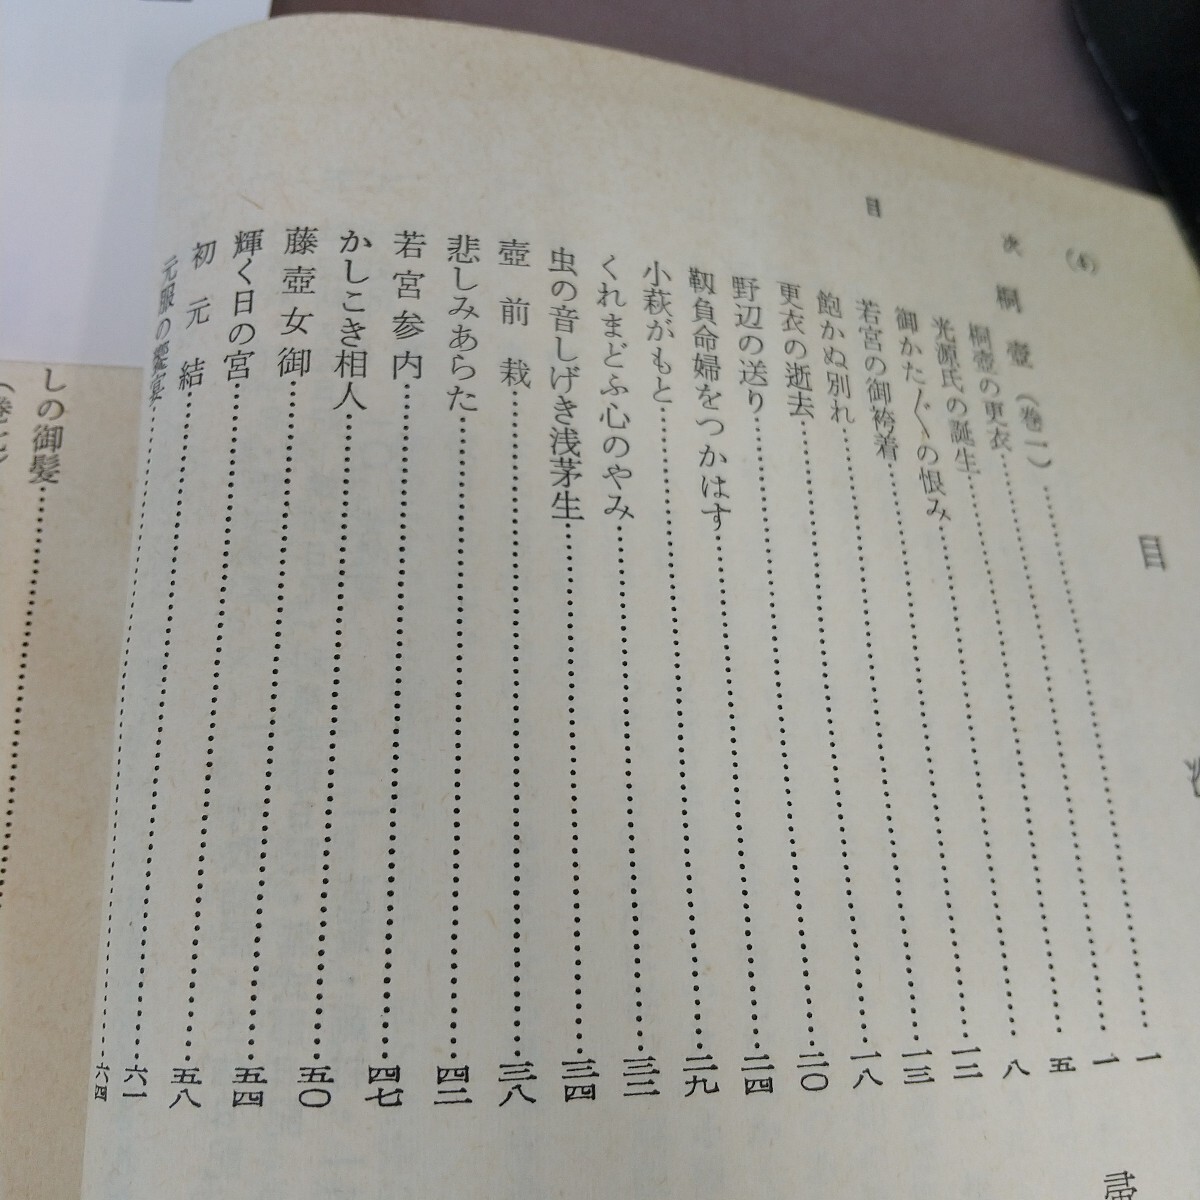 目
目次 (4)
桐壺（巻一）……一
桐壺の更衣……一
光源氏の誕生……五
御かた〴〵の恨み……八
若宮の御袴着……一二
飽かぬ別れ……一三
更衣の逝去……一八
野辺の送り……二〇
靱負命婦をつかはす……二四
小萩がもと……二九
くれまどふ心のやみ……三二
虫の音しげき浅茅生……三四
壺前栽……三八
悲しみあらた……四二
若宮参内……四七
かしこき相人……五〇
藤壺女御……五四
輝く日の宮……五八
初元結……六一
元服の饗宴……六四
しの御髪……